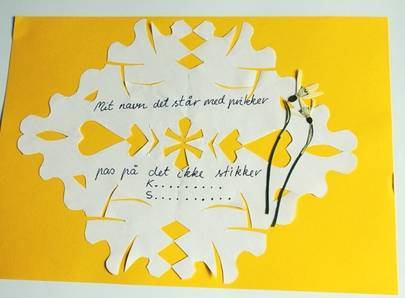 Mit navn det står med prikker
pas på det ikke stikker
K.........
S..........